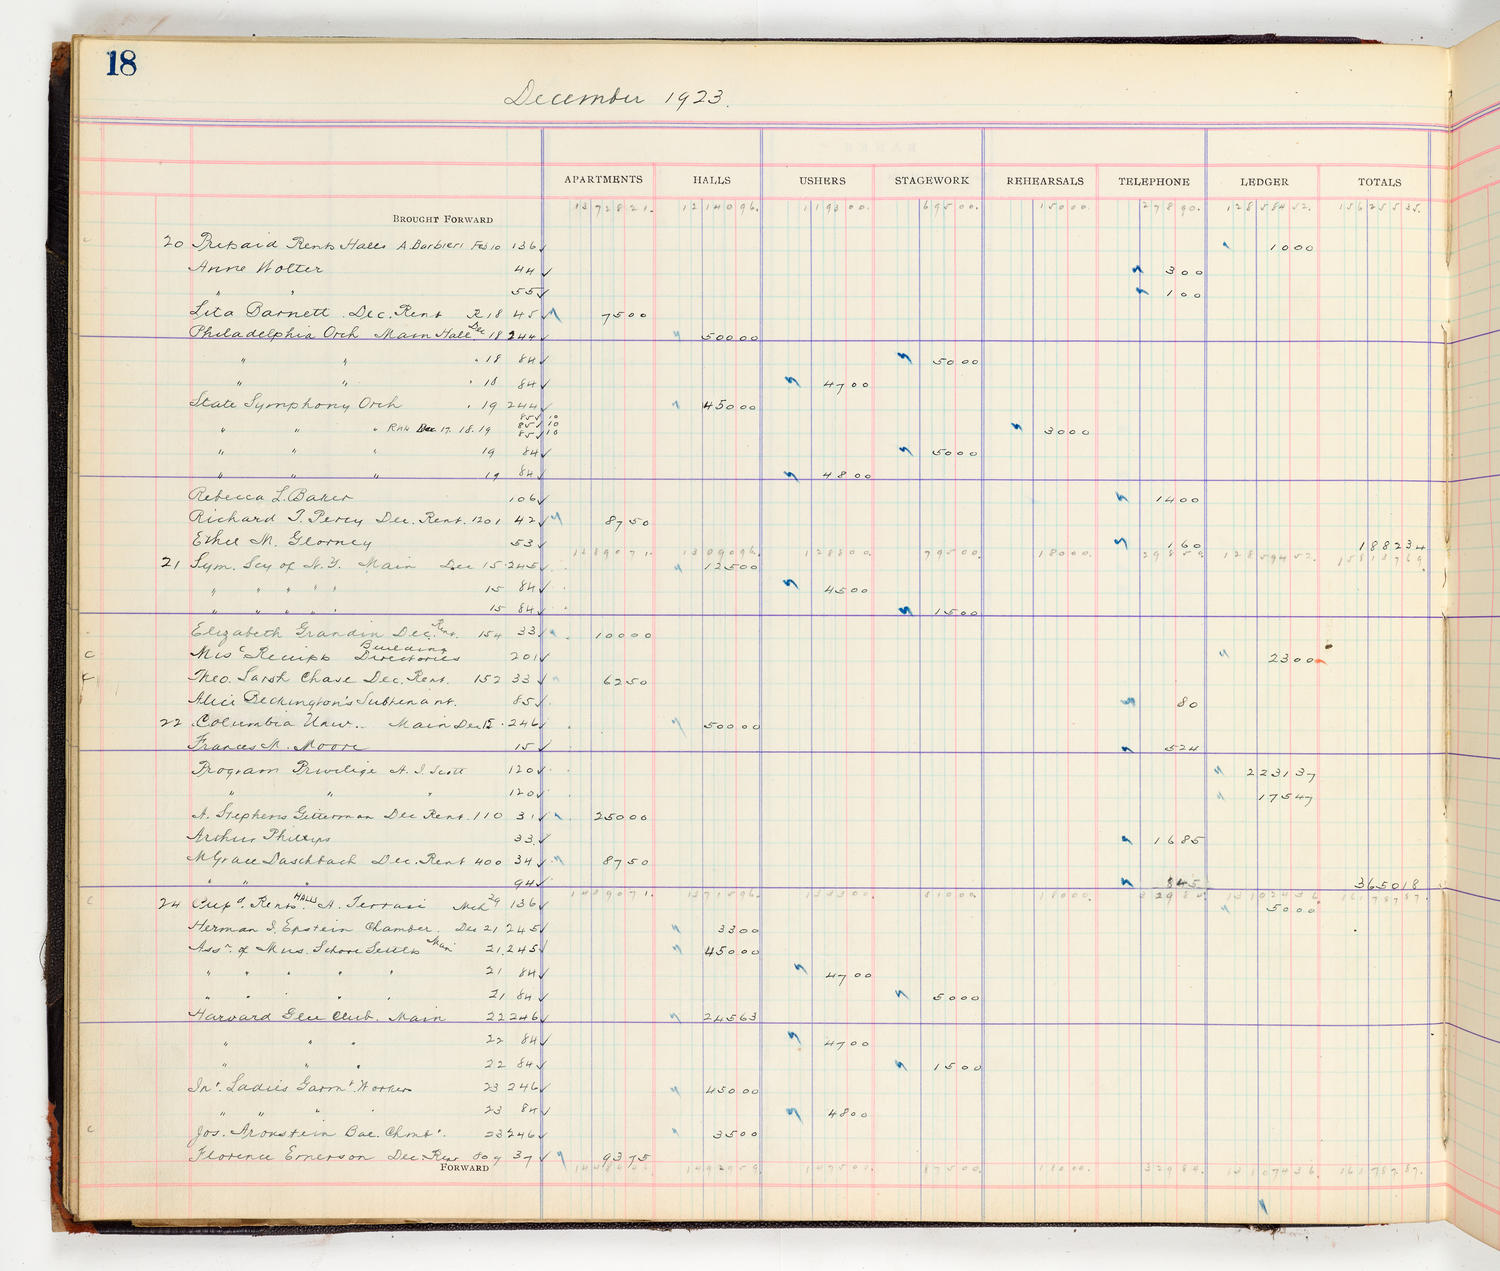 18
December 1923.
APARTMENTS HALLS USHERS STAGEWORK REHEARSALS TELEPHONE LEDGER TOTALS
BROUGHT FORWARD 1372821. 1214096. 119300. 69500. 15000. 27890. 12858452. 15625535.
20 Prepaid Rents Halls A. Barbieri Feb 10 136 ✓ 1000
Anne Wolter 44 ✓ 300
" " 55 ✓ 100
Lita Barnett . Dec. Rent R18 45 ✓ 7500
Philadelphia Orch Main Hall Dec 18 244 ✓ 50000
" " " 18 84 ✓ 5000
" " " 18 84 ✓ 4700
State Symphony Orch " 19 244 ✓ 45000
85 ✓ 10
" " " Reh Dec. 17. 18. 19 85 ✓ 10 3000
85 ✓ 10
" " " 19 84 ✓ 5000
" " " 19 84 ✓ 4800
Rebecca L. Baker 106 ✓ 1400
Richard T. Percy Dec. Rent. 1201 42 ✓ 8750
Ethel M. 53 ✓ 160 188234
1389071. 1309096. 128800. 79500. 18000. 29850. 12859452. 15813769.
21 Sym. Scy of N.Y. Main Dec 15 . 245 ✓ 12500
" " " " " " 15 84 ✓ 4500
" " " " " " 15 84 ✓ 1500
Elizabeth Grandin Dec. Rent. 154 33 ✓ 10000
C Misc Receipts Building Directories 201 ✓ 2300
Theo. Sarah Chase Dec. Rent. 152 33 ✓ 6250
Alice Beckington's Subtenant. 85 ✓ 80
22 Columbia Univ. . Main Dec 15 . 246 ✓ 50000
Frances M. Moore 15 ✓ 524
Program Privilige H. I. Scott 120 ✓ 223137
" " " 120 ✓ 17547
A. Stephens Gitterman Dec Rent. 110 31 ✓ 25000
Arthur Phillips 33 ✓ 1685
M Grace Daschbach Dec. Rent 400 34 ✓ 8750
" " " 94 ✓ 845 365018
C 24 Prepd. Rents Halls A. Ferrari Mch 29 136 ✓ 5000
Herman I. Epstein Chamber. Dec 21 245 ✓ 3300
Assn. of Mus. School Settls Main 21. 245 ✓ 45000
" " " " " 21 84 ✓ 4700
" " " " " 21 84 ✓ 5000
Harvard Glee Club. Main 22 246 ✓ 24563
" " " 22 84 ✓ 4700
" " " 22 84 ✓ 1500
Int. Ladies Garmt. Workers 23 246 ✓ 45000
" " " " 23 84 ✓ 4800
C Jos. Aronstein Bal. Chmbr. 23 246 ✓ 3500
Florence Emerson Dec. Rent 809 37 ✓ 9375
FORWARD 147500. 87500. 18000. 32980. 13107436. 16178787.